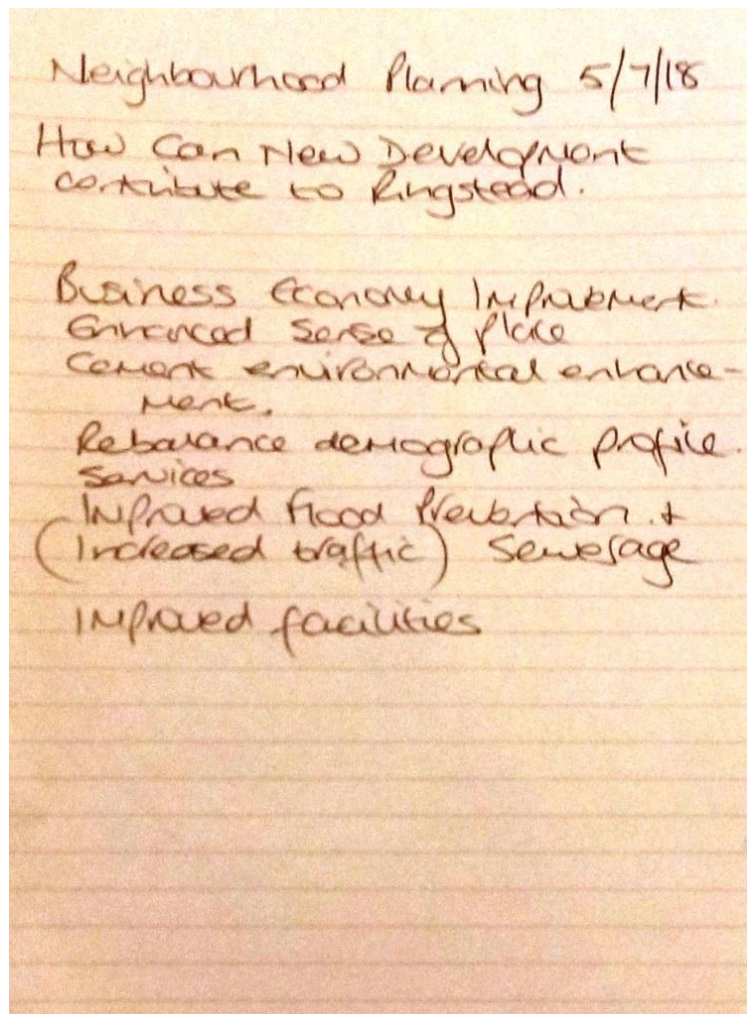 Neighbourhood Planning 5/7/18
How Can New Development
contribute to Ringstead.
Business Economy Improvement.
Enhanced Sense of Place
Cement environmental enhance-
ment.
Rebalance demographic profile.
Services
Improved Flood Prevention +
(Increased traffic) Sewerage
Improved facilities